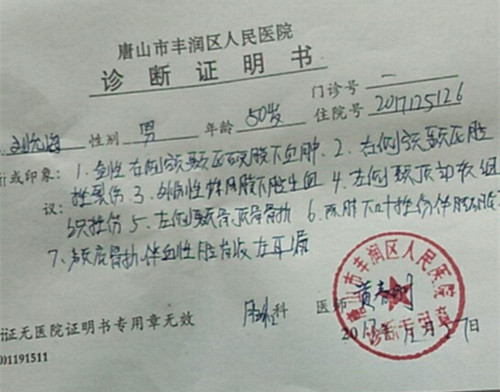 唐山市丰润区人民医院
诊断证明书
门诊号 一
性别 男 年龄 50岁 住院号 2017125126
断或印象: 1.急性右侧额颞顶硬膜下血肿 2.右侧额颞顶脑
挫裂伤 3.外伤性蛛网膜下腔出血 4.左侧颞顶部软组
议:
织挫伤 5.左侧颞骨顶骨骨折 6.两肺下叶挫伤伴胸腔
7.颅底骨折伴血性脑脊液左耳漏
科 医师 黄春
证无医院证明书专用章无效
2017年 月27日
001191511
唐山市丰润区人民医院